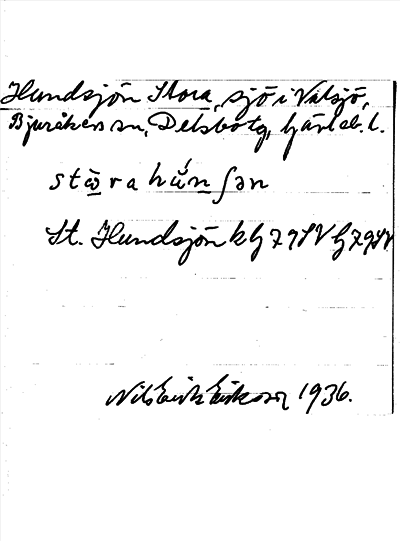 Hundsjön Stora, sjö i Valsjö,
Bjuråkers sn, Delsbo tg, Gävleb. l.
stɷ̀ra hu̇́nʃən
St. Hundsjön kG79SV G79SV
Nils Erik Eriksson 1936.